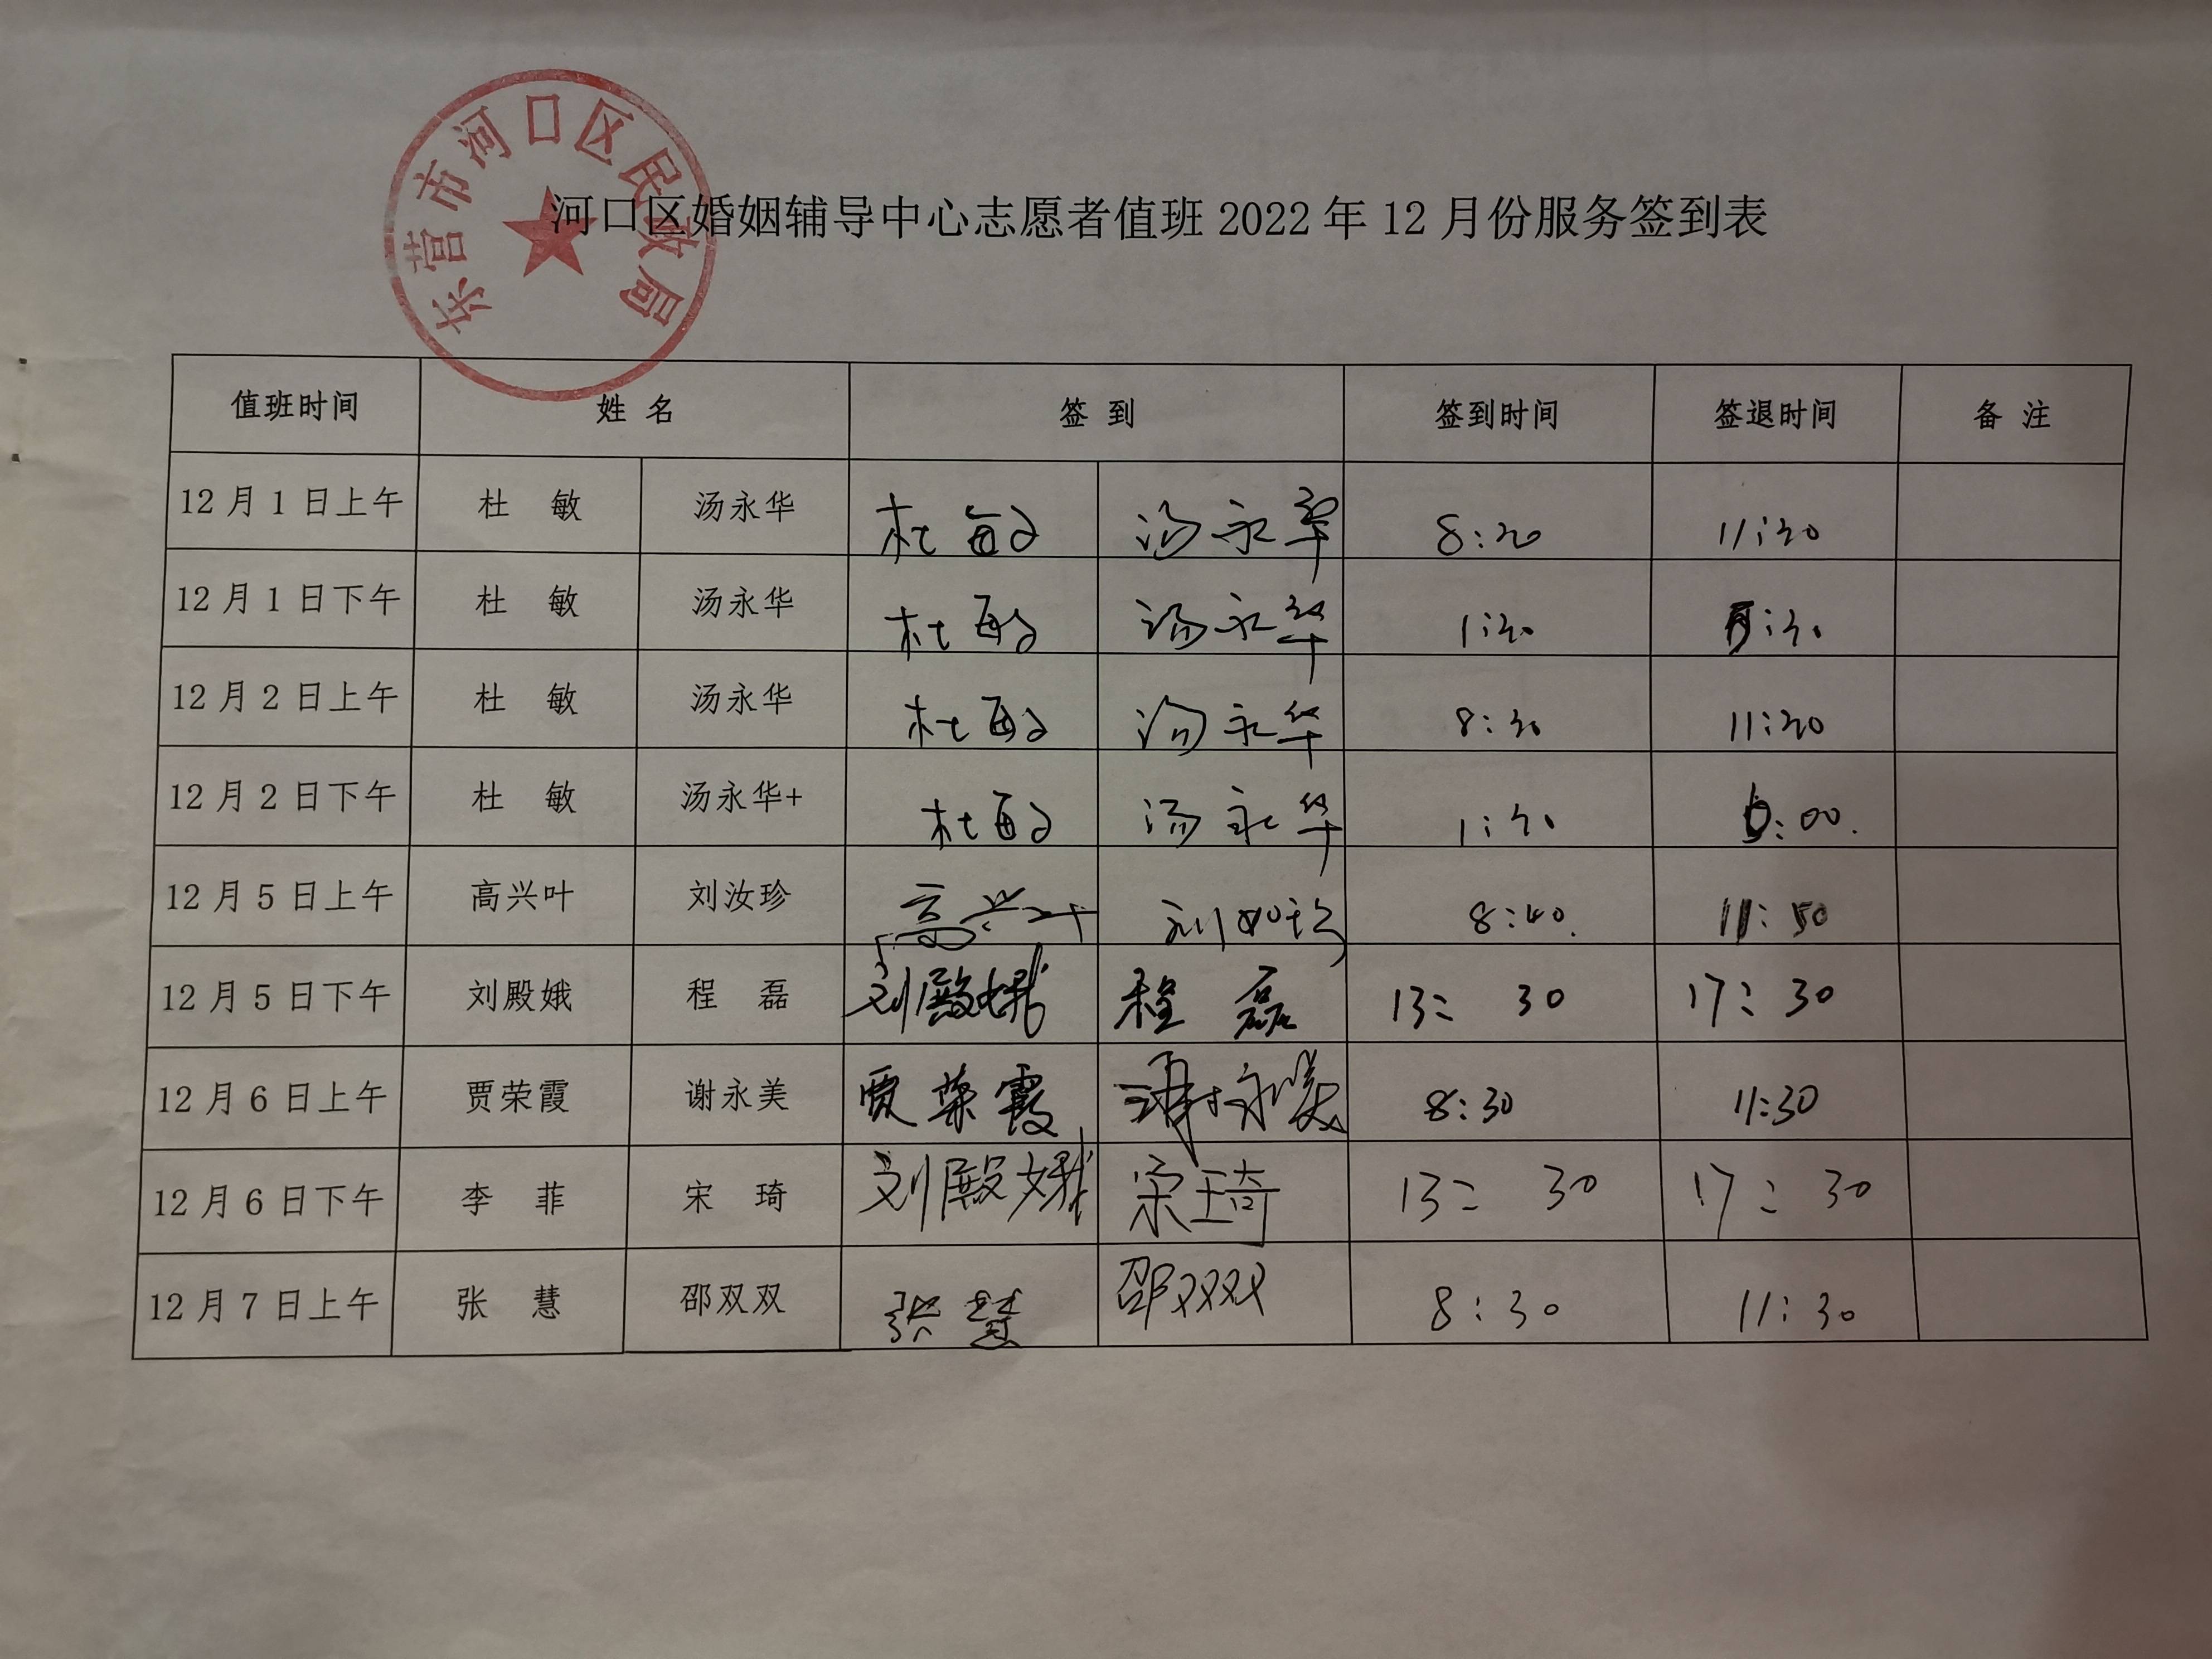 东营市河口区民政局
河口区婚姻辅导中心志愿者值班 2022 年 12 月份服务签到表
值班时间 姓 名 签 到 签到时间 签退时间 备 注
12 月 1 日上午 杜 敏 汤永华 杜敏 汤永华 8:20 11:20
12 月 1 日下午 杜 敏 汤永华 杜敏 汤永华 1:20 5:20
12 月 2 日上午 杜 敏 汤永华 杜敏 汤永华 8:20 11:20
12 月 2 日下午 杜 敏 汤永华+ 杜敏 汤永华 1:20 :00.
12 月 5 日上午 高兴叶 刘汝珍 高兴叶 刘汝珍 8:40. 11:50
12 月 5 日下午 刘殿娥 程 磊 刘殿娥 程磊 13: 30 17: 30
12 月 6 日上午 贾荣霞 谢永美 贾荣霞 谢永美 8:30 11:30
12 月 6 日下午 李 菲 宋 琦 刘殿娥 宋琦 13: 30 17: 30
12 月 7 日上午 张 慧 邵双双 张慧 邵双双 8:30 11:30